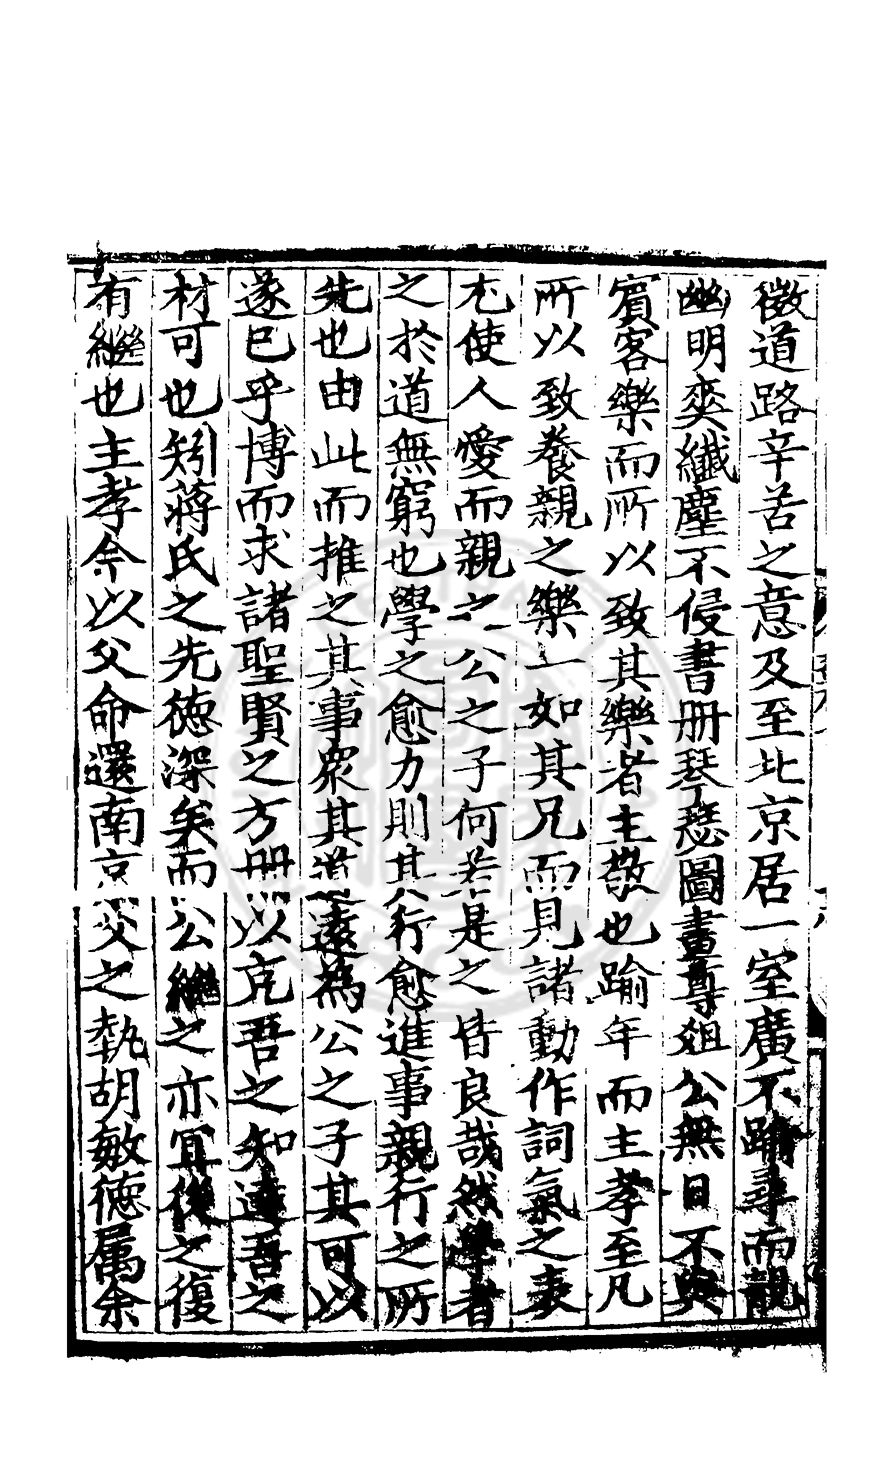 微道路辛苦之意及至北京居一室廣不踰尋而靚
幽明爽纎塵不侵書册琴瑟圖畫尊爼公無日不與
賓客樂而所以致其樂者主敬也踰年而主孝至凡
所以致養親之樂一如其兄而見諸動作詞氣之表
尤使人愛而親之公之子何若是之皆良哉然學者
之於道無窮也學之愈力則其行愈進事親行之所
先也由此而推之其事衆其道逺為公之子其可以
遂已乎博而求諸聖賢之方册以充吾之知達吾之
材可也矧蔣氏之先徳深矣而公繼之亦冝後之復
有繼也主孝今以父命還南京父之執胡敏徳属余